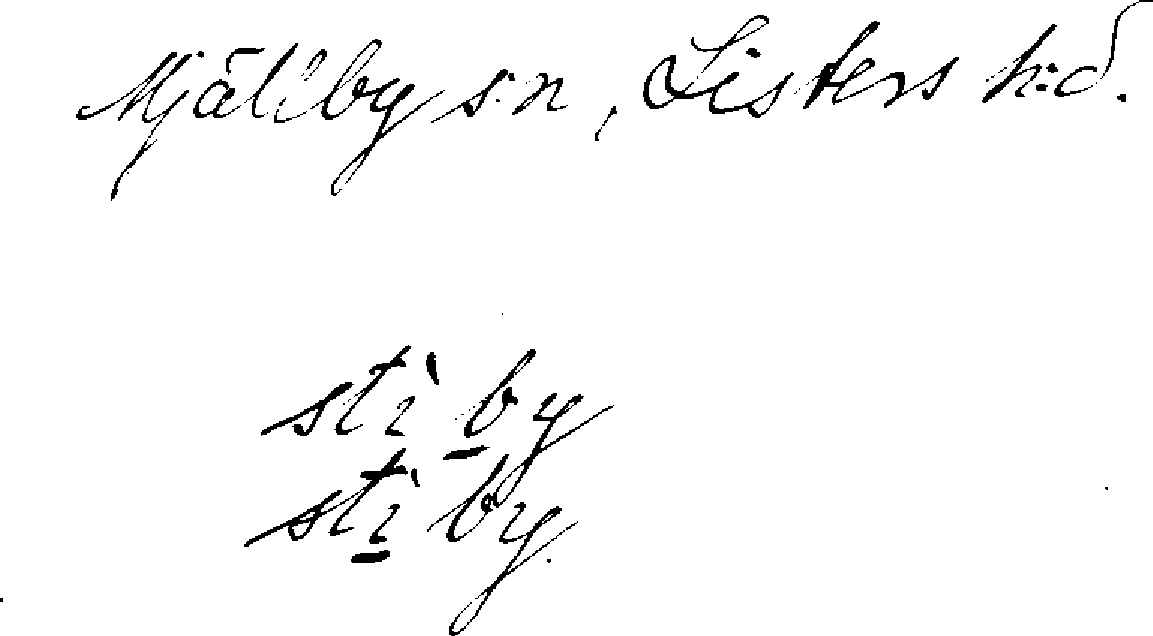 Mjällby s:n, Listers h:d.
stìb̲y
stì̲by.